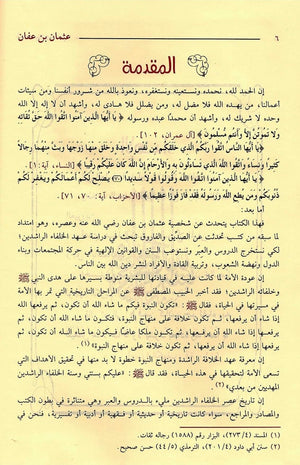 ٦
عثمان بن عفان
المقدمة
إن الحمد لله، نحمده ونستعينه ونستغفره، ونعوذ بالله من شرور أنفسنا ومن سيئات
أعمالنا، من يهده الله فلا مضل له، ومن يضلل فلا هادي له، وأشهد أن لا إله إلا الله
وحده لا شريك له، وأشهد أن محمدًا عبده ورسوله
﴿يَا أَيُّهَا الَّذِينَ آمَنُوا اتَّقُوا اللَّهَ حَقَّ تُقَاتِهِ
وَلَا تَمُوتُنَّ إِلَّا وَأَنْتُمْ مُسْلِمُونَ﴾ [آل عمران: ١٠٢].
﴿يَا أَيُّهَا النَّاسُ اتَّقُوا رَبَّكُمُ الَّذِي خَلَقَكُمْ مِنْ نَفْسٍ وَاحِدَةٍ وَخَلَقَ مِنْهَا زَوْجَهَا وَبَثَّ مِنْهُمَا رِجَالًا
كَثِيرًا وَنِسَاءً وَاتَّقُوا اللَّهَ الَّذِي تَسَاءَلُونَ بِهِ وَالْأَرْحَامَ إِنَّ اللَّهَ كَانَ عَلَيْكُمْ رَقِيبًا﴾ [النساء، آية: ١].
﴿يَا أَيُّهَا الَّذِينَ آمَنُوا اتَّقُوا اللَّهَ وَقُولُوا قَوْلًا سَدِيدًا (٧٠) يُصْلِحْ لَكُمْ أَعْمَالَكُمْ وَيَغْفِرْ لَكُمْ
ذُنُوبَكُمْ وَمَنْ يُطِعِ اللَّهَ وَرَسُولَهُ فَقَدْ فَازَ فَوْزًا عَظِيمًا﴾ [الأحزاب، آية: ٧٠، ٧١].
أما بعد:
فهذا الكتاب يتحدث عن شخصية عثمان بن عفان رضي الله عنه وعصره، وهو امتداد
لما سبقه من كتب تحدثت عن الصديق والفاروق تبحث في دراسة عهد الخلفاء الراشدين؛
لكي نستخرج الدروس والعبر ونستوعب السنن والقوانين الإلهية في حركة المجتمعات وبناء
الدول ونهضة الشعوب، وتربية القادة والأفراد لنشر دين الله بين الناس.
إن عودة الأمة لما كانت عليه في قيادتها للبشرية منوطة بسيرها على هدى النبي ﷺ
وخلفائه الراشدين؛ فقد أخبر الحبيب المصطفى ﷺ عن المراحل التاريخية التي تمر بها الأمة
في مسيرتها في الحياة، فقال ﷺ: «تكون النبوة فيكم ما شاء الله أن تكون، ثم يرفعها الله
إذا شاء أن يرفعها، ثم تكون خلافة على منهاج النبوة، فتكون ما شاء الله أن تكون، ثم
يرفعها الله إذا شاء الله أن يرفعها، ثم تكون ملكًا عاضًا فيكون ما شاء الله أن تكون، ثم
يرفعها إذا شاء الله أن يرفعها، ثم تكون خلافة على منهاج النبوة» (١).
إن معرفة عهد الخلافة الراشدة ومنهاج النبوة خطوة لا بد منها في تحقيق الأهداف التي
تسعى الأمة لتحقيقها في هذه الحياة، فقد قال ﷺ: «عليكم بسنتي وسنة الخلفاء الراشدين
المهديين من بعدي» (٢).
إن تاريخ عصر الخلفاء الراشدين مليء بالدروس والعبر وهي متناثرة في بطون الكتب
والمصادر والمراجع، سواء كانت تاريخية أو حديثية أو فقهية أو أدبية أو تفسيرية، فنحن في
(١) المسند (٤/٢٧٣)، البزار رقم (١٥٨٨) رجاله ثقات.
(٢) سنن أبي داود (٤/٢٠١)، الترمذي (٥/٤٤) حسن صحيح.